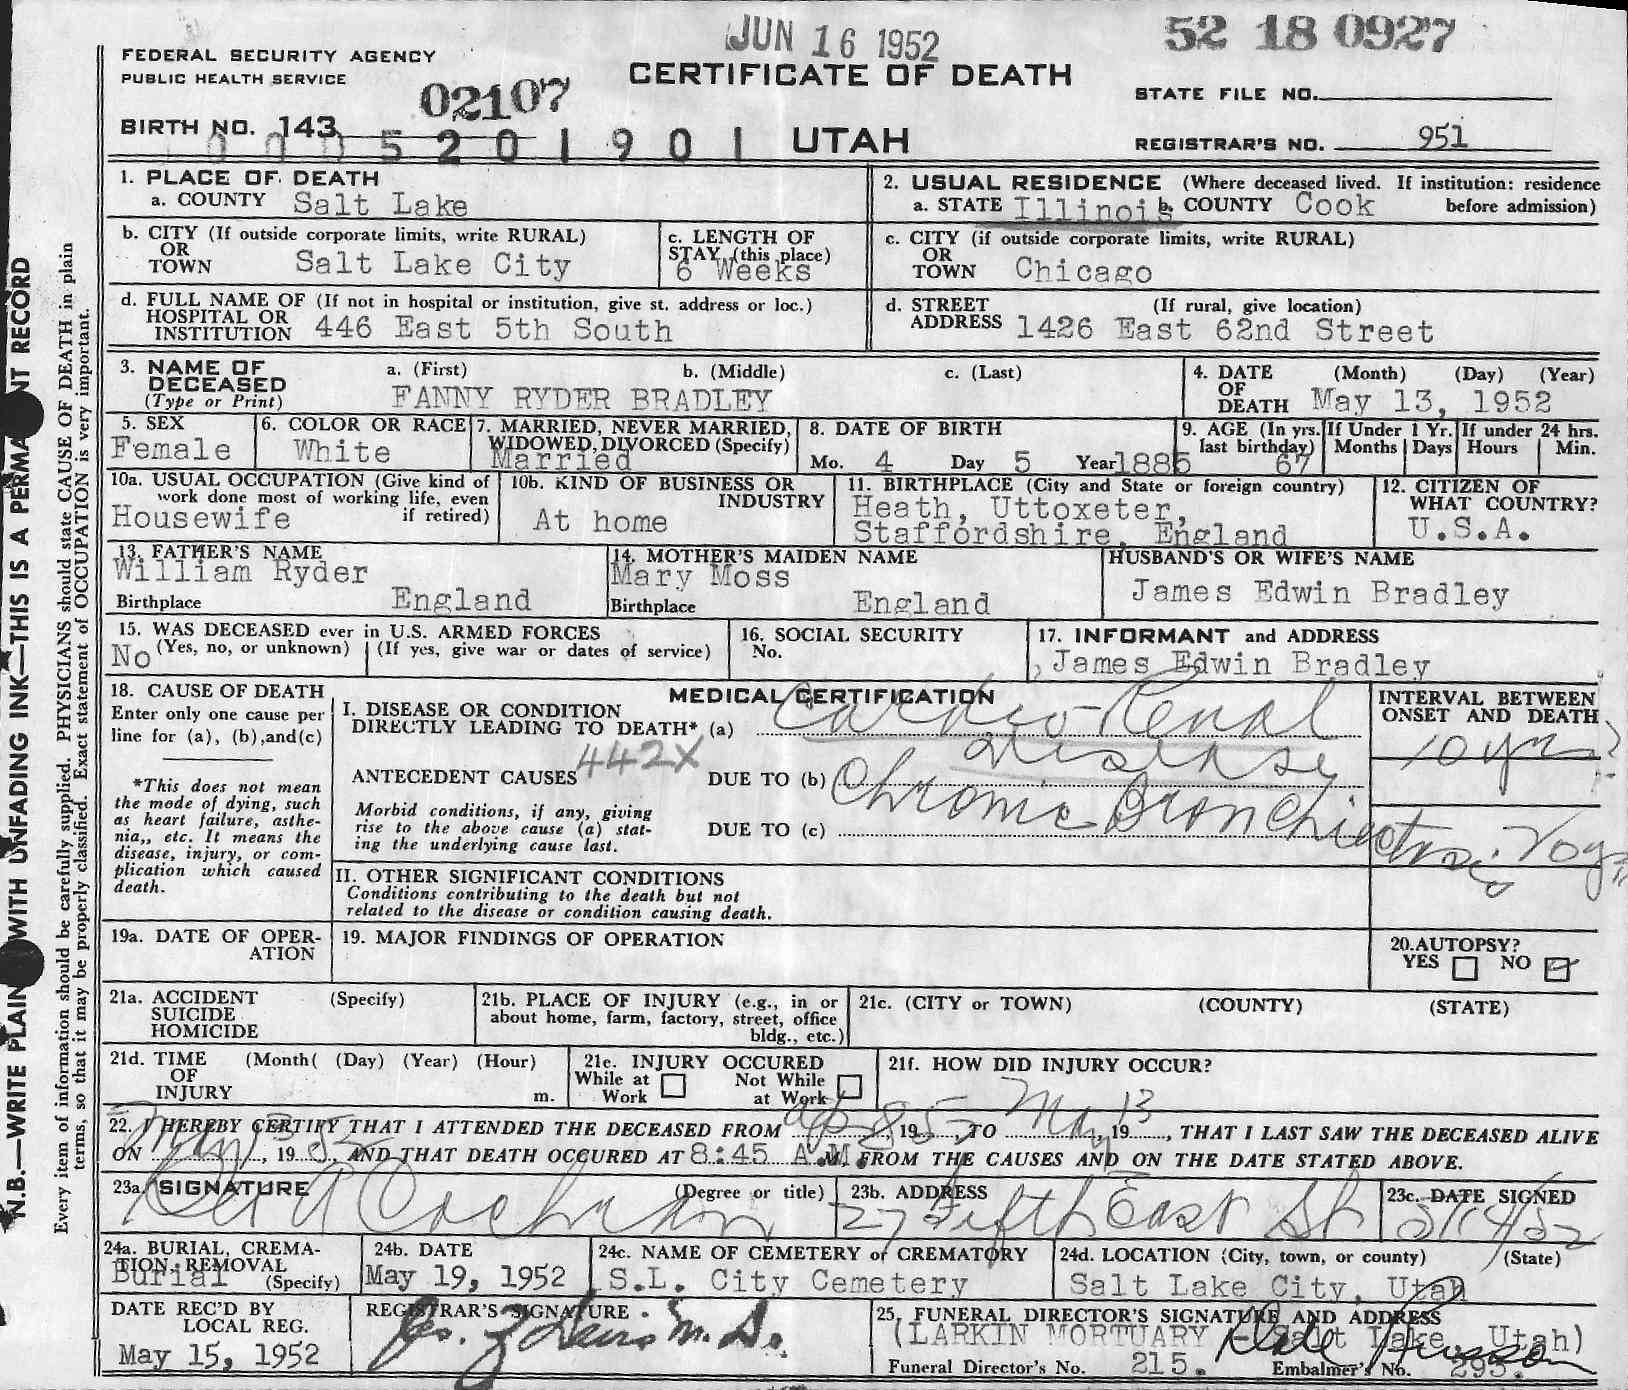 JUN 16 1952
52 18 0927
FEDERAL SECURITY AGENCY
PUBLIC HEALTH SERVICE
CERTIFICATE OF DEATH
STATE FILE NO.
02107
BIRTH NO. 143
0 0 0 5 2 0 1 9 0 1
UTAH
REGISTRAR'S NO. 951
1. PLACE OF DEATH
a. COUNTY Salt Lake
2. USUAL RESIDENCE (Where deceased lived. If institution: residence before admission)
a. STATE Illinois b. COUNTY Cook
b. CITY (If outside corporate limits, write RURAL)
OR
TOWN Salt Lake City
c. LENGTH OF
STAY (this place)
6 Weeks
c. CITY (if outside corporate limits, write RURAL)
OR
TOWN Chicago
d. FULL NAME OF (If not in hospital or institution, give st. address or loc.)
HOSPITAL OR
INSTITUTION 446 East 5th South
d. STREET (If rural, give location)
ADDRESS 1426 East 62nd Street
3. NAME OF
DECEASED
(Type or Print)
a. (First) b. (Middle) c. (Last)
FANNY RYDER BRADLEY
4. DATE (Month) (Day) (Year)
OF
DEATH May 13, 1952
5. SEX
Female
6. COLOR OR RACE
White
7. MARRIED, NEVER MARRIED,
WIDOWED, DIVORCED (Specify)
Married
8. DATE OF BIRTH
Mo. 4 Day 5 Year 1885
9. AGE (In yrs. last birthday) 67
If Under 1 Yr.
Months Days
If under 24 hrs.
Hours Min.
10a. USUAL OCCUPATION (Give kind of
work done most of working life, even
if retired)
Housewife
10b. KIND OF BUSINESS OR
INDUSTRY
At home
11. BIRTHPLACE (City and State or foreign country)
Heath, Uttoxeter,
Staffordshire, England
12. CITIZEN OF
WHAT COUNTRY?
U.S.A.
13. FATHER'S NAME
William Ryder
Birthplace England
14. MOTHER'S MAIDEN NAME
Mary Moss
Birthplace England
HUSBAND'S OR WIFE'S NAME
James Edwin Bradley
15. WAS DECEASED ever in U.S. ARMED FORCES
No (Yes, no, or unknown) (If yes, give war or dates of service)
16. SOCIAL SECURITY
No.
17. INFORMANT and ADDRESS
James Edwin Bradley
18. CAUSE OF DEATH
Enter only one cause per
line for (a), (b),and(c)
*This does not mean
the mode of dying, such
as heart failure, asthe-
nia,, etc. It means the
disease, injury, or com-
plication which caused
death.
MEDICAL CERTIFICATION
I. DISEASE OR CONDITION
DIRECTLY LEADING TO DEATH* (a) Cardio-Renal
Disease
442X
ANTECEDENT CAUSES
DUE TO (b) Chronic Bronchiectasis
Morbid conditions, if any, giving
rise to the above cause (a) stat-
ing the underlying cause last.
DUE TO (c)
INTERVAL BETWEEN
ONSET AND DEATH
10 yrs?
II. OTHER SIGNIFICANT CONDITIONS
Conditions contributing to the death but not
related to the disease or condition causing death.
19a. DATE OF OPER-
ATION
19. MAJOR FINDINGS OF OPERATION
20.AUTOPSY?
YES NO
21a. ACCIDENT (Specify)
SUICIDE
HOMICIDE
21b. PLACE OF INJURY (e.g., in or
about home, farm, factory, street, office
bldg., etc.)
21c. (CITY or TOWN) (COUNTY) (STATE)
21d. TIME (Month( (Day) (Year) (Hour)
OF
INJURY m.
21e. INJURY OCCURED
While at
Work
Not While
at Work
21f. HOW DID INJURY OCCUR?
22. I HEREBY CERTIFY THAT I ATTENDED THE DECEASED FROM Apr 8, 1952, TO May 13, 19, THAT I LAST SAW THE DECEASED ALIVE
ON May 13, 1952, AND THAT DEATH OCCURED AT 8:45 A.M. FROM THE CAUSES AND ON THE DATE STATED ABOVE.
23a. SIGNATURE (Degree or title)
Cochran
23b. ADDRESS
27 Fifth East St
23c. DATE SIGNED
5/14/52
24a. BURIAL, CREMA-
TION, REMOVAL
(Specify)
Burial
24b. DATE
May 19, 1952
24c. NAME OF CEMETERY or CREMATORY
S.L. City Cemetery
24d. LOCATION (City, town, or county) (State)
Salt Lake City, Utah
DATE REC'D BY
LOCAL REG.
May 15, 1952
REGISTRAR'S SIGNATURE
M.D.
25. FUNERAL DIRECTOR'S SIGNATURE AND ADDRESS
(LARKIN MORTUARY - Salt Lake, Utah)
Funeral Director's No. 215.
Embalmer's No. 295.
N.B.—WRITE PLAIN WITH UNFADING INK—THIS IS A PERMA NT RECORD
Every item of information should be carefully supplied. PHYSICIANS should state CAUSE OF DEATH in plain
terms, so that it may be properly classified. Exact statement of OCCUPATION is very important.